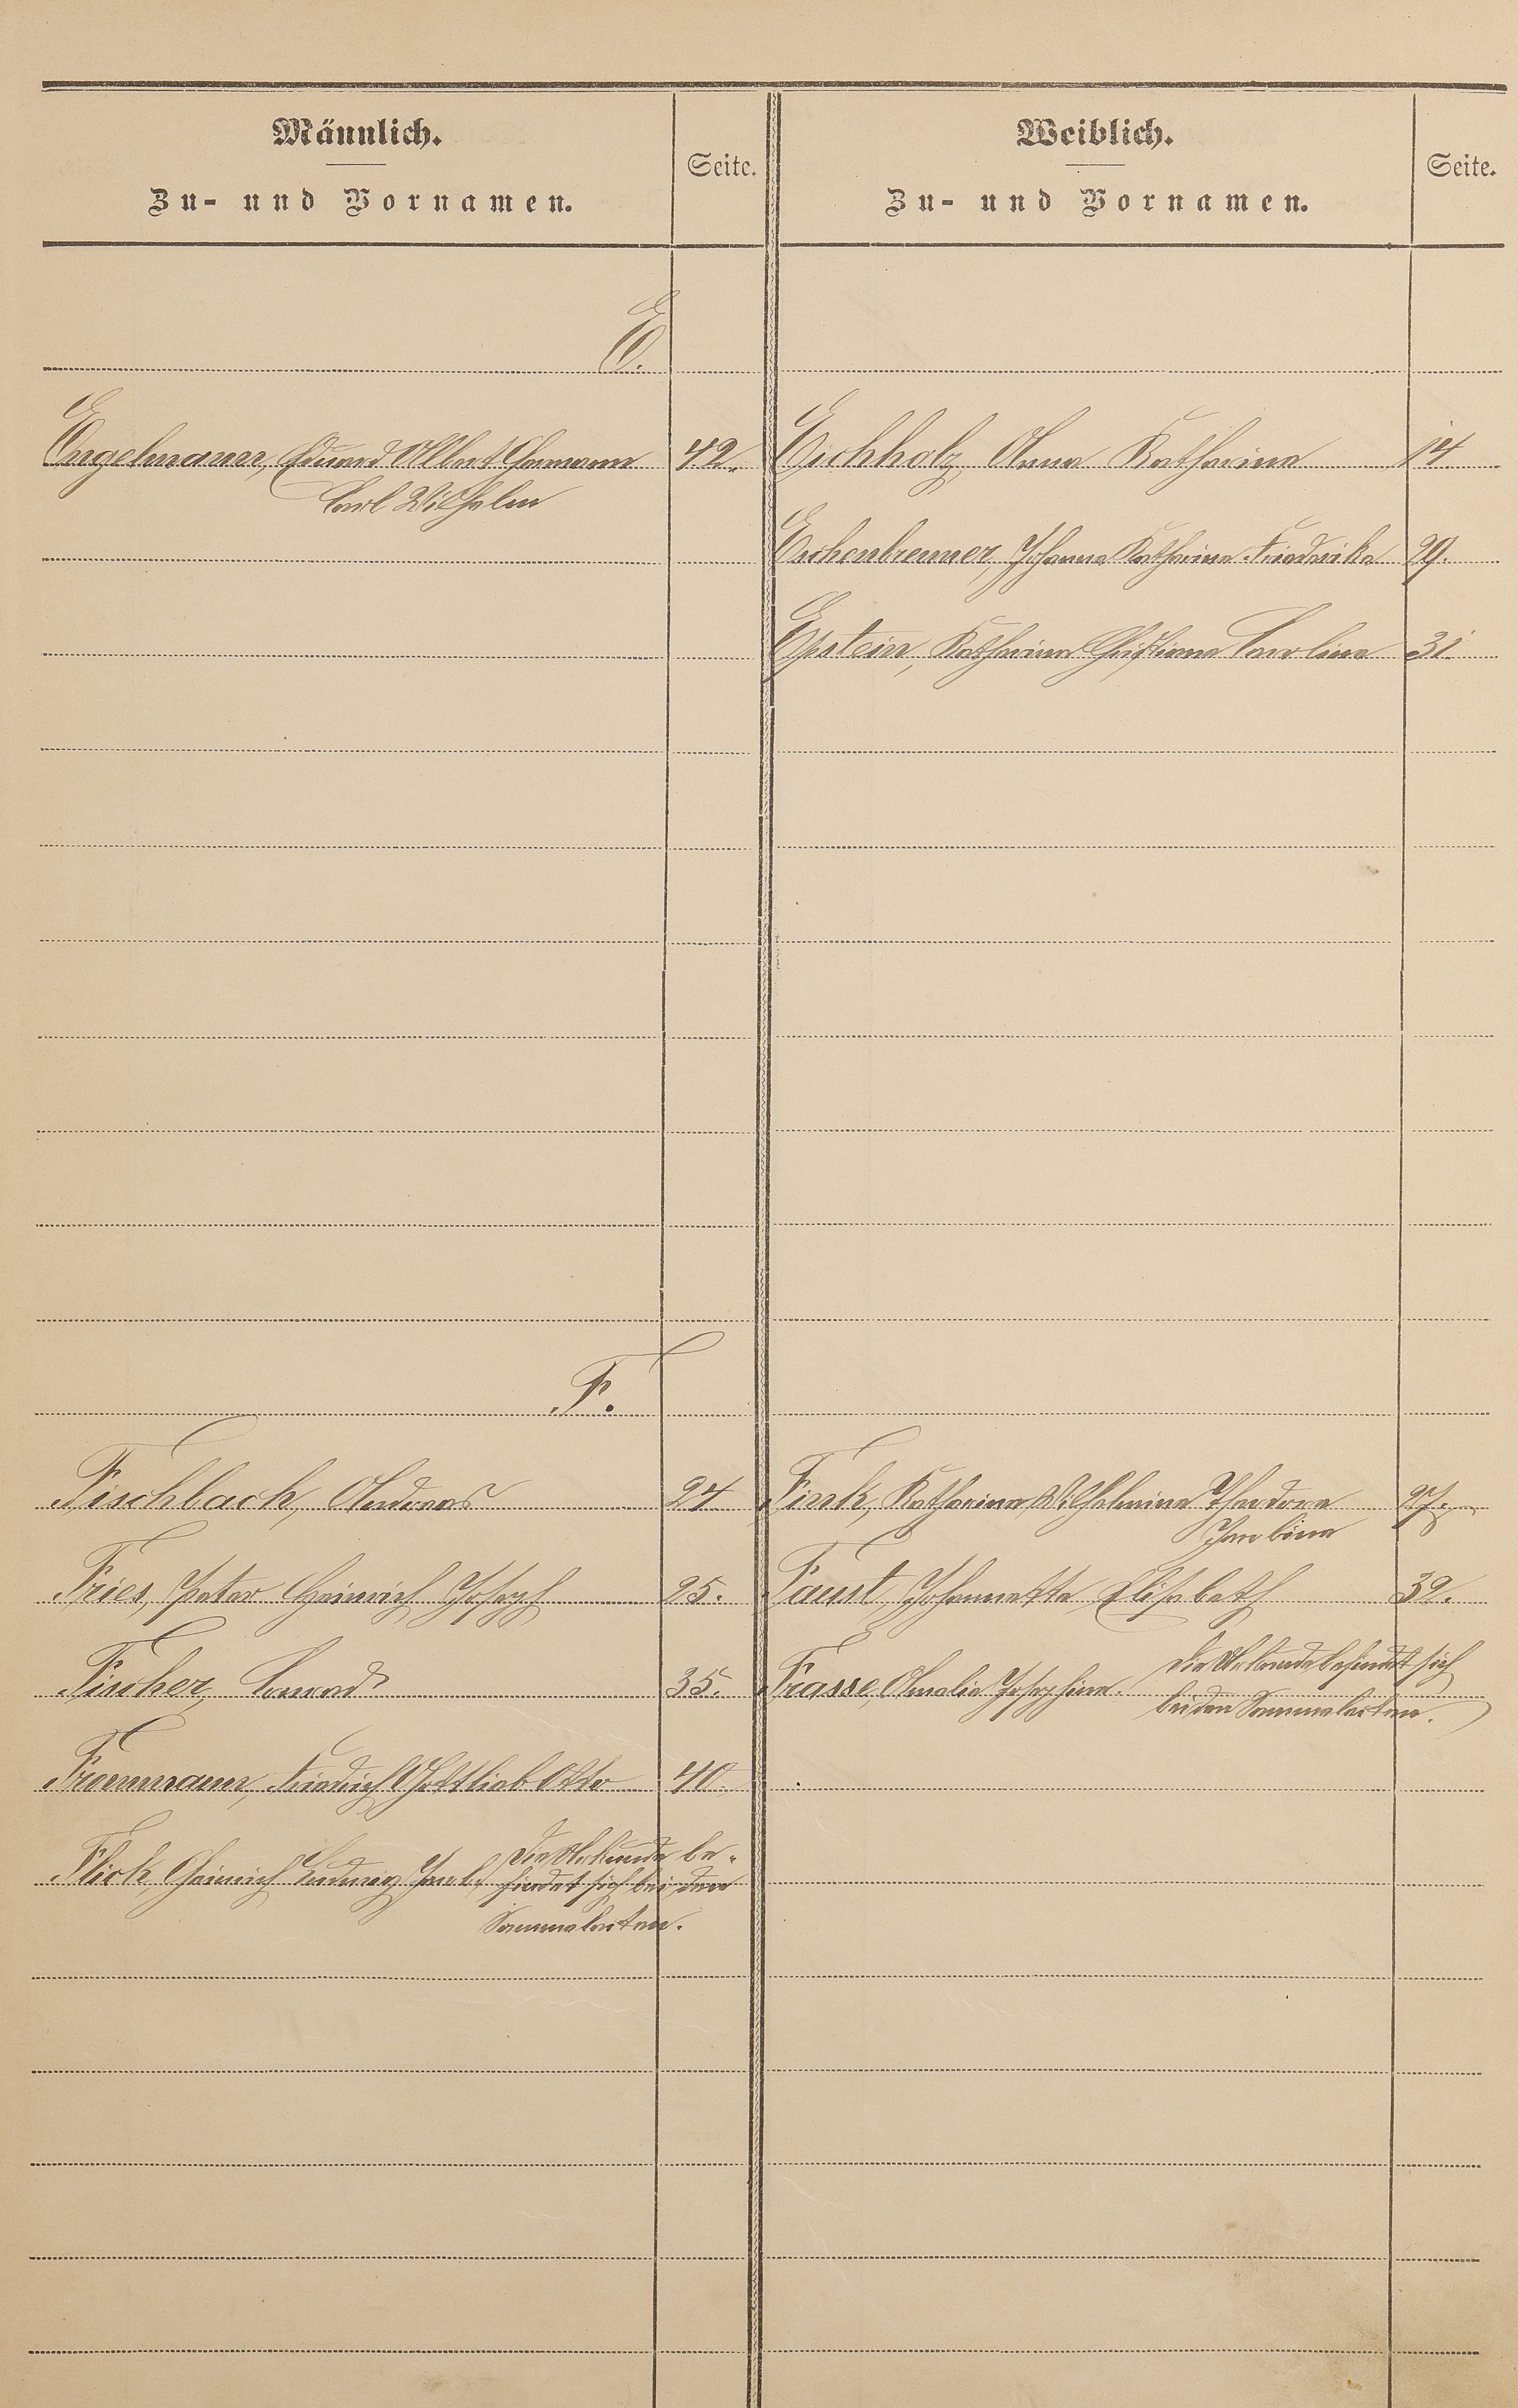 Männlich.
Zu- und Vornamen.
Seite.
Weiblich.
Zu- und Vornamen.
Seite.
E.
Engelmann, Eduard Albert Hermann 42.
Carl Wilhelm
Eichholz, Anna Katharina 14
Eschenbrenner, Johanna Katharina Friederika 29.
Epstein, Katharina Christiana Carolina 31.
F.
Fischbach, Andreas 24
Fink, Katharina Wilhelmina Theodora 27.
Jacobina
Fries, Peter Heinrich Joseph 25.
Faust, Johannetta Elisabeth 32.
Fischer, Conrad 35.
Frasse, Amalia Josephina. Die Urkunde befindet sich
bei den Sammelacten.
Frommann, Friedrich Gottlieb Otto 40.
Flick, Heinrich Ludwig Jacob, Die Urkunde be-
findet sich bei den
Sammelacten.